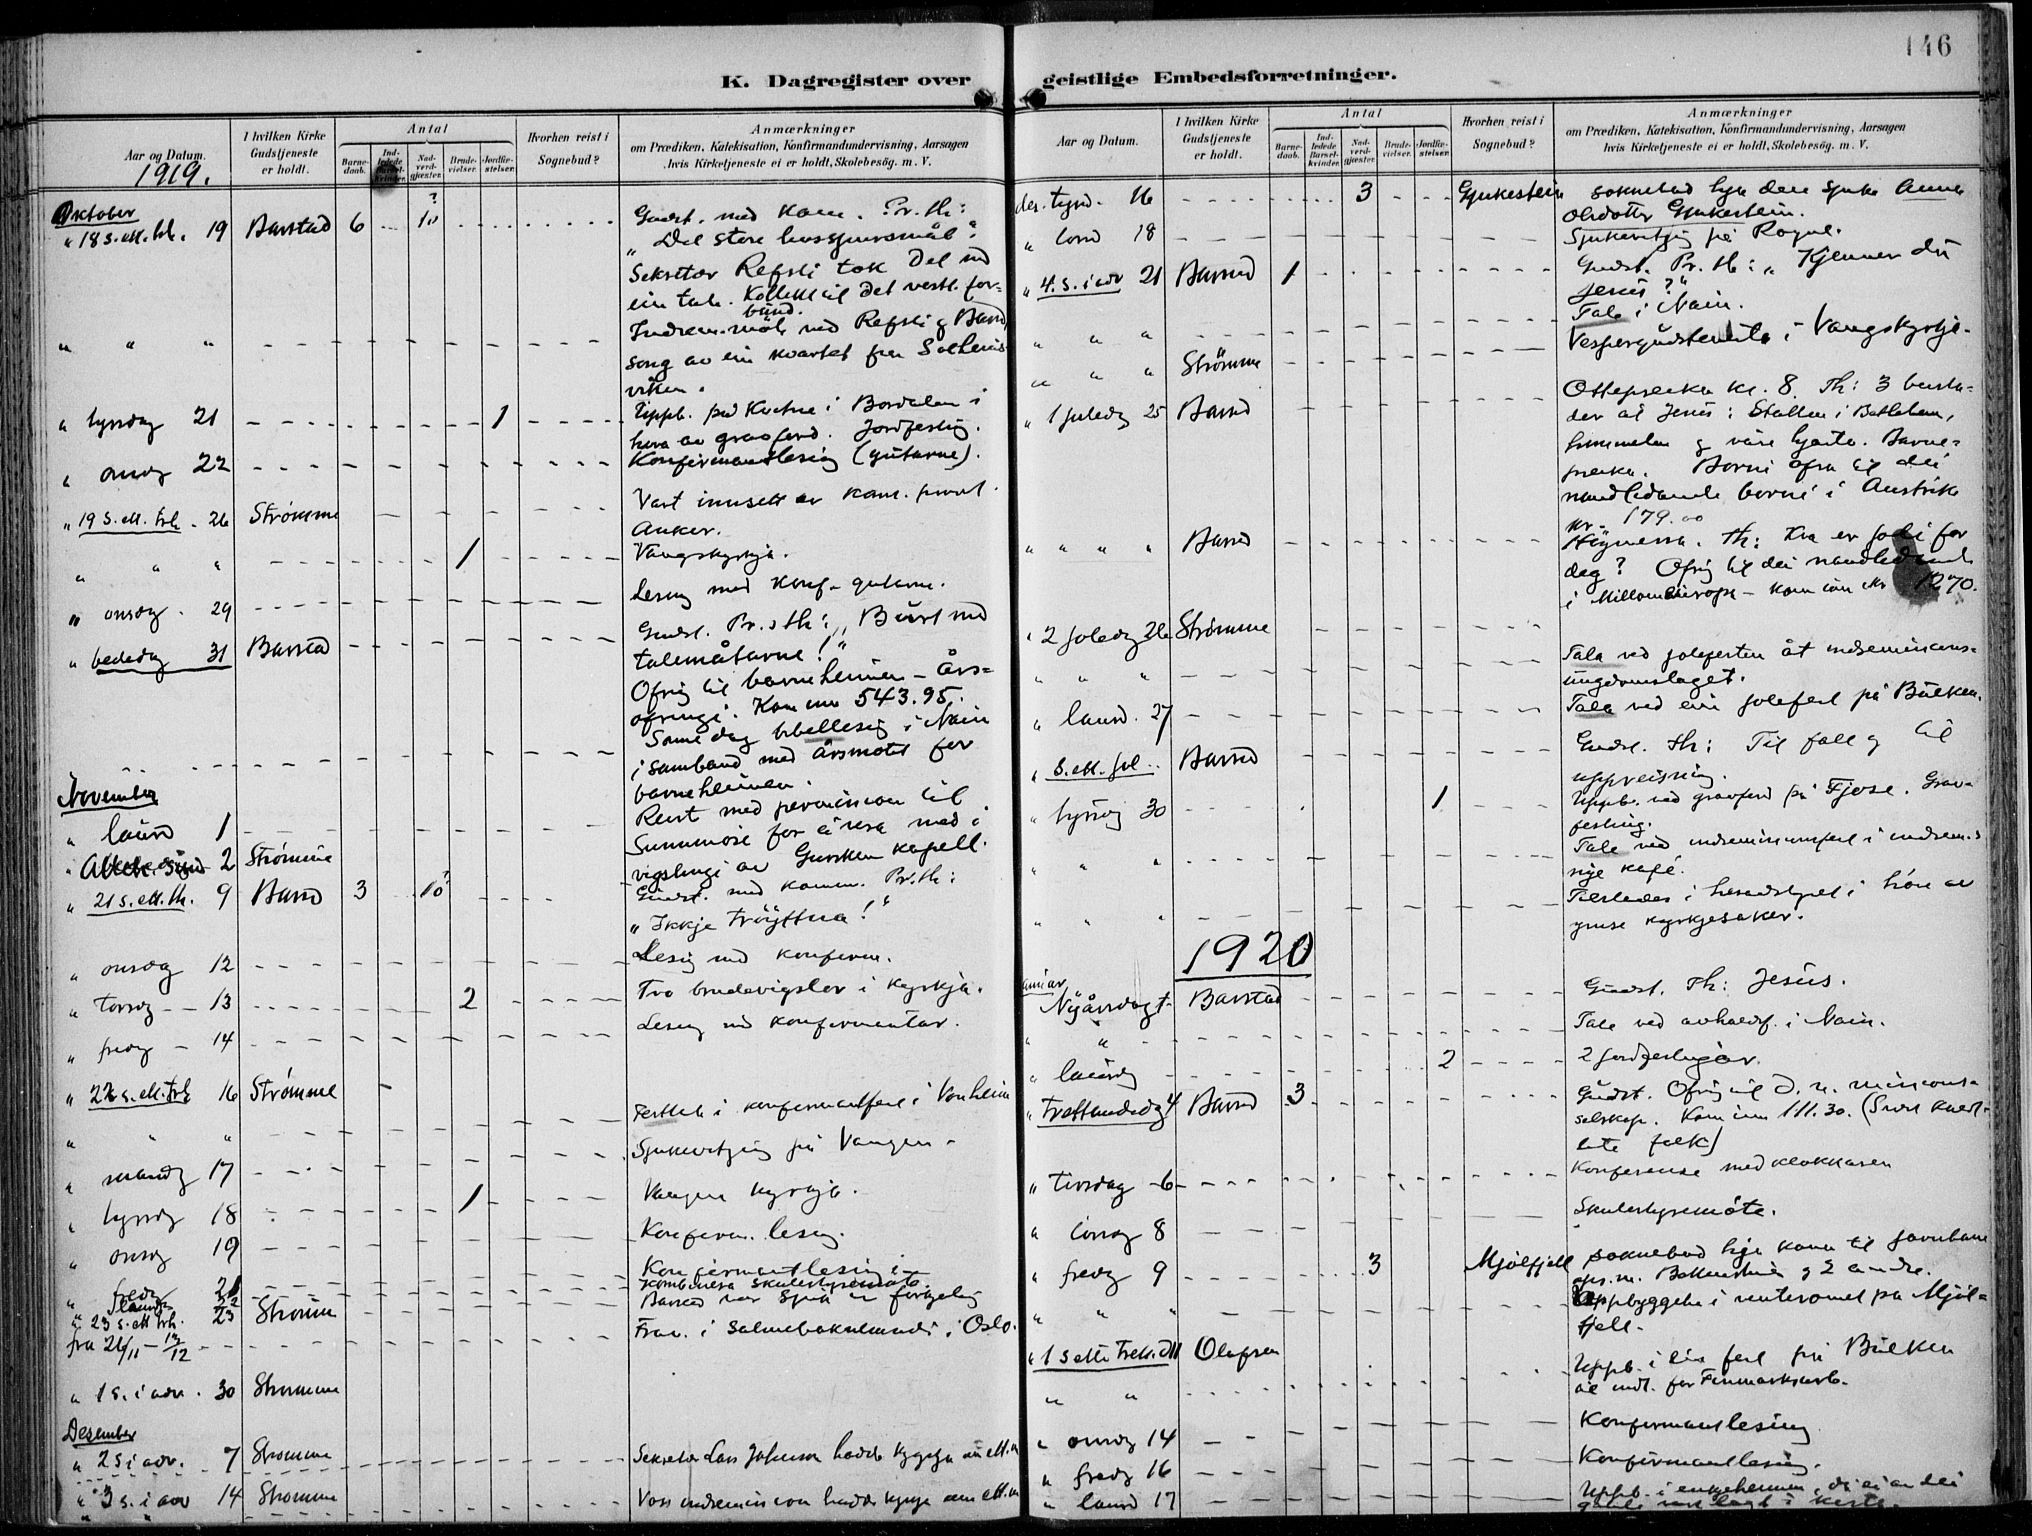 146
K. Dagregister over geistlige Embedsforretninger.
Aar og Datum.
1919.
I hvilken Kirke Gudstjeneste er holdt.
Antal
Barnedaab.
Indledede Barselkvinder.
Nadverdgjæster.
Brudevielser.
Jordfæstelser.
Hvorhen reist i Sognebud?
Anmærkninger
om Prædiken, Katekisation, Konfirmandundervisning, Aarsagen
hvis Kirketjeneste ei er holdt, Skolebesøg. m. V.
Oktober
" 18 s. ett. trh. 19 Barstad 6 10 ? Gudst. med kom. Pr. th:
" Det store husspursmål."
Sekretær Refsli tok del med
ein tale. Kollekt til Det vestl. for=
bund.
" " " Indrem. møte med Refsli g
song av ein kvartet fra Solheims
viken.
" tyrsdag 21 1 Uppb. på i Bordalen i
høve av gravferd. Jordfestig.
" onsdg 22 Konfirmantlesing (gutarne).
" 19 s. ett. trh. 26 Strømme Vart innsett av kam.
Anker.
" " " 1 Vangskyrkja.
" onsdg. 29 Lesing med konf. gutarne.
" bededag 31 Barstad Gudst. Pr. th: " Burt med
talemåtarne!"
Ofrig til barneheimen - års=
ofringi. Kom inn 543.95.
Same dag bibellesig i Nain
i samband med årsmøtet for
barneheimen.
November
" laurd 1 Reist med permission til
Sunnmøre for å vera med i
" 2 Strømme vigslingi av Gursken kapell.
" 21 s. ett. th. 9 Barsd 3 10 ? Gudst. med komm. Pr. th:
" Ikkje trøyttna!"
" onsdg 12 Lesig med konferm.
" torsdg 13 2 Tvo brudevigslor i kyrkja.
" fredg 14 Lesing med konfermantar.
" 22 s. ett. trh 16 Strømme
" " " Festtale i konfermantfest i Vonheim
" mandg 17 Sjukevitjing på Vangen.
" tyrsdg 18 1 Vangen kyrkje.
" onsdg 19 Konferm. lesing.
" fredg 21 Konfermantlesing i
" laurdg 22 Kombinera skulestyremøte.
" 23 s. ett trh. 23 Strømme Barstad var sjuk
fra 26/11 - 12/12 Frav. i salmeboknemndi i Oslo.
" 1 s. i adv. 30 Strømme
Desember
" 2 s i adv. 7 Strømme Sekretær Lars Johnson hadde kyrkja um ett. m
" 3 s. i adv 14 Strømme Voss indremisjon hadde kyrkje um ett. m
Aar og Datum.
I hvilken Kirke Gudstjeneste er holdt.
Antal
Barnedaab.
Indledede Barselkvinder.
Nadverdgjæster.
Brudevielser.
Jordfæstelser.
Hvorhen reist i Sognebud?
Anmærkninger
om Prædiken, Katekisation, Konfirmandundervisning, Aarsagen
hvis Kirketjeneste ei er holdt, Skolebesøg. m. V.
des. tysd. 16 3 Gjukestein soknebud hjå den sjuke Anna
Olsdotter Gjukestein.
" 18 Sjukevitjig på Rogne.
" 4. s. i adv 21 Barsd 1 Gudst. Pr. th: " Kjenner du
Jesus?"
" " " Tale i Nain.
" " " Strømme Vespergudstenesta i Vangskyrkje.
" 1 juledg 25 Barsd Ottepreika kl. 8. Th: 3 busta=
der åt Jesus: Stallen i Betlehem,
himmelen g våre hjarto. Barne=
preika. Borni ofra til dei
naudlidande borni i Austrike
kr. 179.00
" " " " Barsd Høgmessa. Th: Kva er joli for
dag? Ofrig til dei naudlidande
i Millomeuropa - kom inn kr 1270.
" 2 joledg 26 Strømme
" " " Tala ved jolefesten åt indremisjons=
ungdomslaget.
" laurd. 27 Tala ved ein jolefest på Bulken.
" s. ett. jol. Barsd Gudst. th: Til fall g til
uppreisning.
" tyrsdg 30 1 Uppb. ved gravferd på Fjose. Grav=
festing.
" " " Tale ved indremisjonsfest i indrem.s
nye kafé.
" " " Tilstedes i heradstyret i høve av
ymse kyrkjesaker.
1920
Januar
Nyårsdag Barstad Gudst. Th: Jesus.
" " Tale ved avholdsf. i Nain.
" laurdg 2 2 jordfestingar.
" trettandedg 4 Barsd 3 Gudst. Ofrig til D. n. misjons=
selskap. Kom inn 111.30. (
lite folk)
" tirsdag 6 Konferense med klokkaren
" torsdg 8 Skulestyremøte.
" fredg 9 3 Mjølfjell soknebud hjå kona til jarnbane
g 2 andre.
" " " Uppbyggelse i venteromet på Mjøl=
fjell.
" 1 s etti trett. d 11 Olafsen
" " Uppb. i ein fest på Bulken
til innt. for Finmarksarb.
" onsdg 14 Konfermantlesing
" fredg 16 Konfirmantlesing.
" laurd 17 Uppb. i enkeheimen, då ei av dei
gamle vart lagt i kiste.